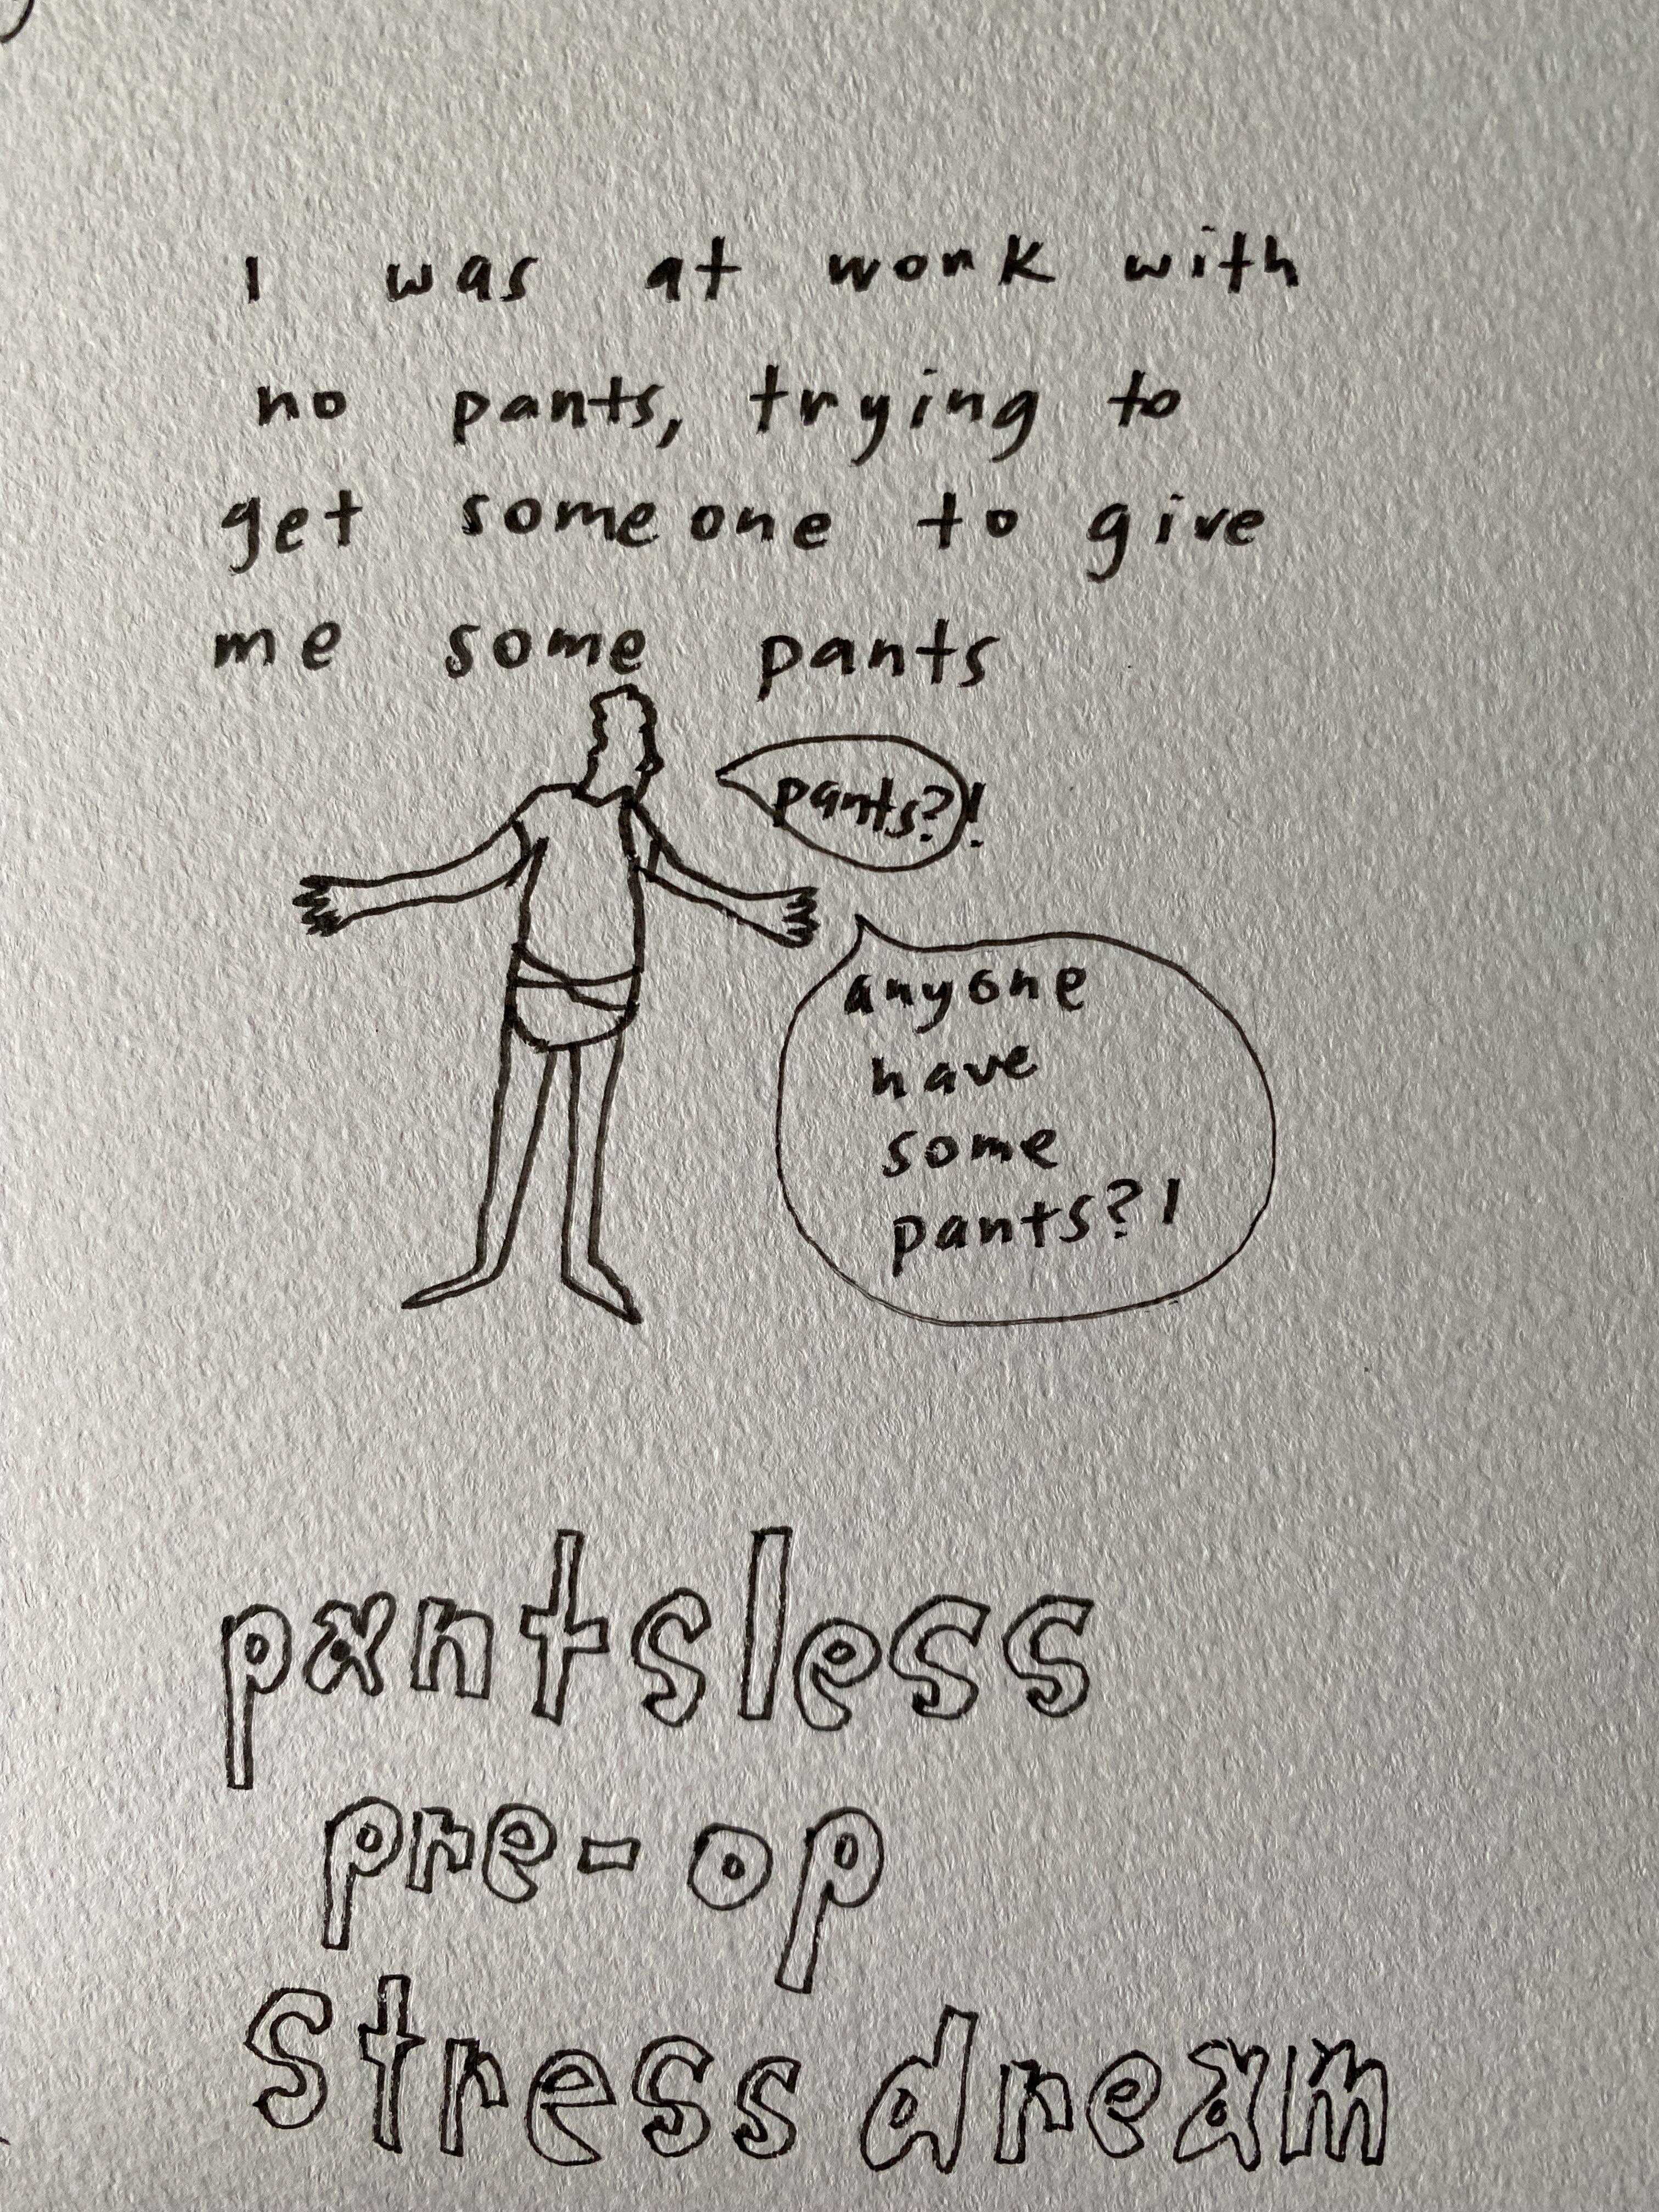 I was at work with
no pants, trying to
get someone to give
me some pants
pants?!
anyone
have
some
pants?!
pantsless
pre-op
stress dream